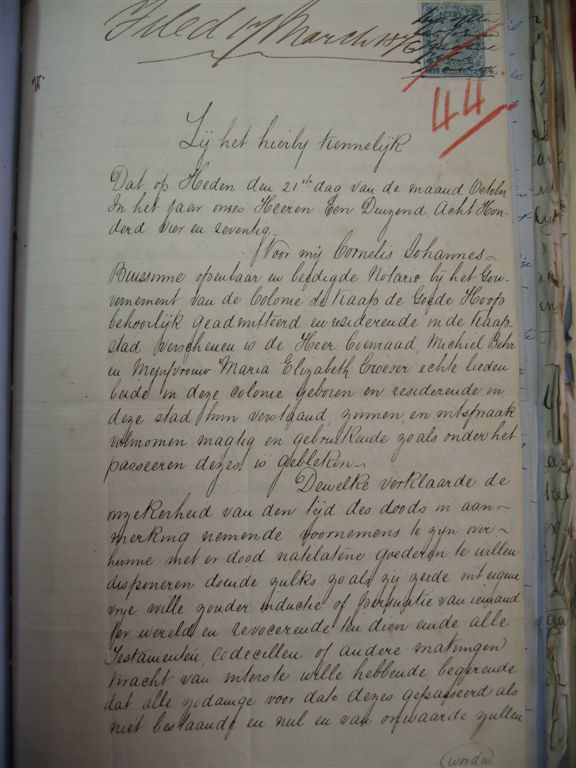 Filed 17 March 187
SHILLINGS
44
W.
Zij het hierby Kennelijk
Dat op Heden den 21ste dag van de maand October
In het Jaar onzes Heeren Een Duizend, Acht Hon-
derd vier en zeventig.
Voor my Cornelis Johannes
Buissinne openbaar en beedigde Notaris bij het Gou-
vernement van de Colonie de Kaap de Goede Hoop
behoorlijk geadmitteerd en residerende in de Kaap-
stad verschenen is de Heer Coenraad, Michiel Behr
en Mejufvrouw Maria Elizabeth Croeser echte lieden
beide in deze colonie geboren en residerende in
deze stad hun verstand, zinnen, en uitspraak
volkomen magtig en gebruikende zoals onder het
passeeren dezes is gebleken
Dewelke verklaarde de
onzekerheid van den tijd des doods in aan-
merking nemende voornemens te zyn over
hunne met er dood natelatene goederen te willen
disponeren doende zulks zoals zij zeide uit eigene
vrye wille zonder inductie of persuatie van iemand
ter wereld en revocerende ten dien einde alle
Testamenten, Codecillen of andere makingen
kracht van uiterste wille hebbende, begerende
dat alle zodanige voor dato dezes gepasseerd als
niet bestaande en nul en van onwaarde zullen
worden